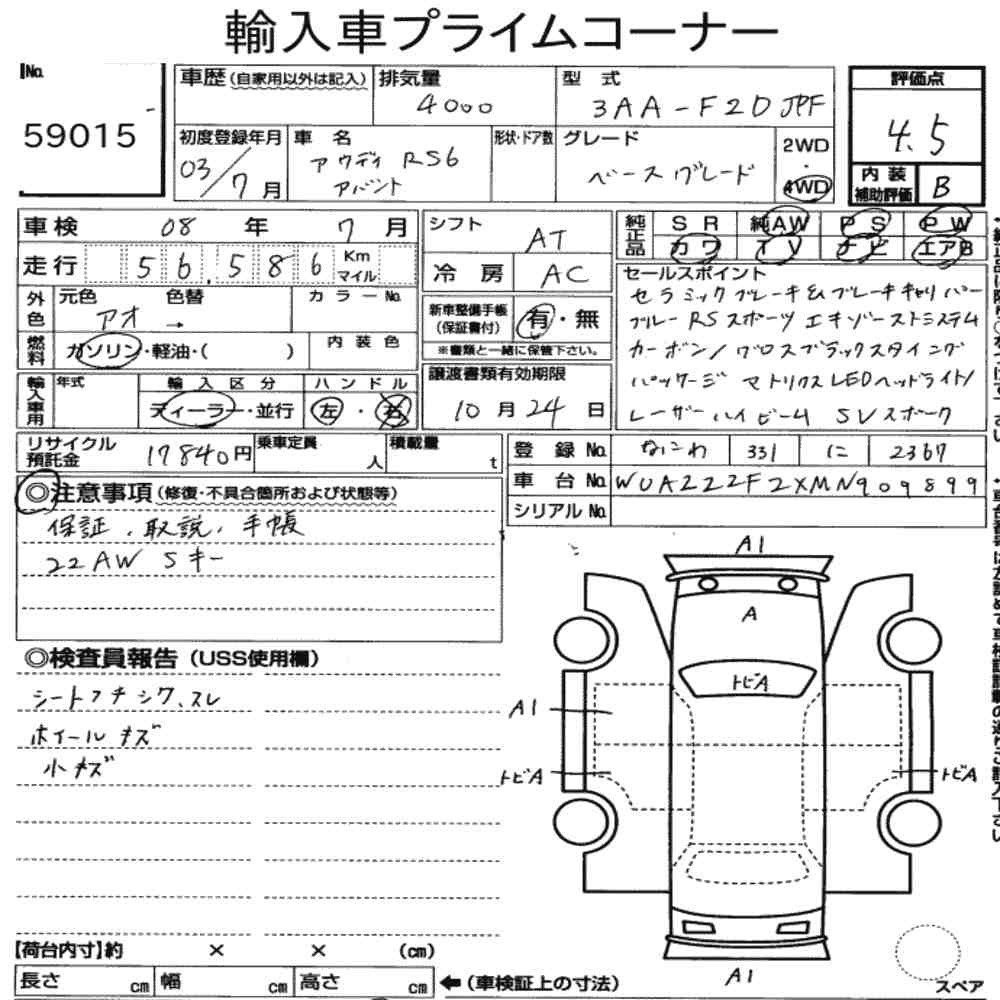 輸入車プライムコーナー
No.
59015
車歴 (自家用以外は記入)
排気量
4000
型式
3AA-F2DJPF
評価点
4.5
内装補助評価
B
初度登録年月
03/7月
車名
アウディ RS6
アバント
形状・ドア数
グレード
ベースグレード
2WD
・
4WD
車検 08年 7月
走行 56,586 Km マイル
外色
元色 色替
アオ →
カラーNo.
燃料
ガソリン・軽油・( )
内装色
輸入車用
年式
輸入区分
ディーラー・並行
ハンドル
左・右
シフト AT
冷房 AC
新車整備手帳
(保証書付)
有・無
※書類と一緒に保管下さい。
譲渡書類有効期限
10月24日
純正品
SR 純AW PS PW
カワ TV ナビ エアB
セールスポイント
セラミックブレーキ&ブレーキキャリパー
ブルー RSスポーツエキゾーストシステム
カーボン/グロスブラックスタイング
パッケージ マトリクスLEDヘッドライト/
レーザーハイビーム 5Vスポーク
リサイクル預託金 17840円
乗車定員 人
積載量 t
登録No. なにわ 331 に 2367
車台No. WUAZZZF2XMN909899
シリアルNo.
◎注意事項 (修復・不具合箇所および状態等)
保証、取説、手帳
22AW Sキー
◎検査員報告 (USS使用欄)
シートフチシワ、スレ
ホイールキズ
小キズ
A1
A
トビA
A1
トビA
トビA
A1
【荷台内寸】約 × × (cm)
長さ cm 幅 cm 高さ cm ←(車検証上の寸法)
スペア